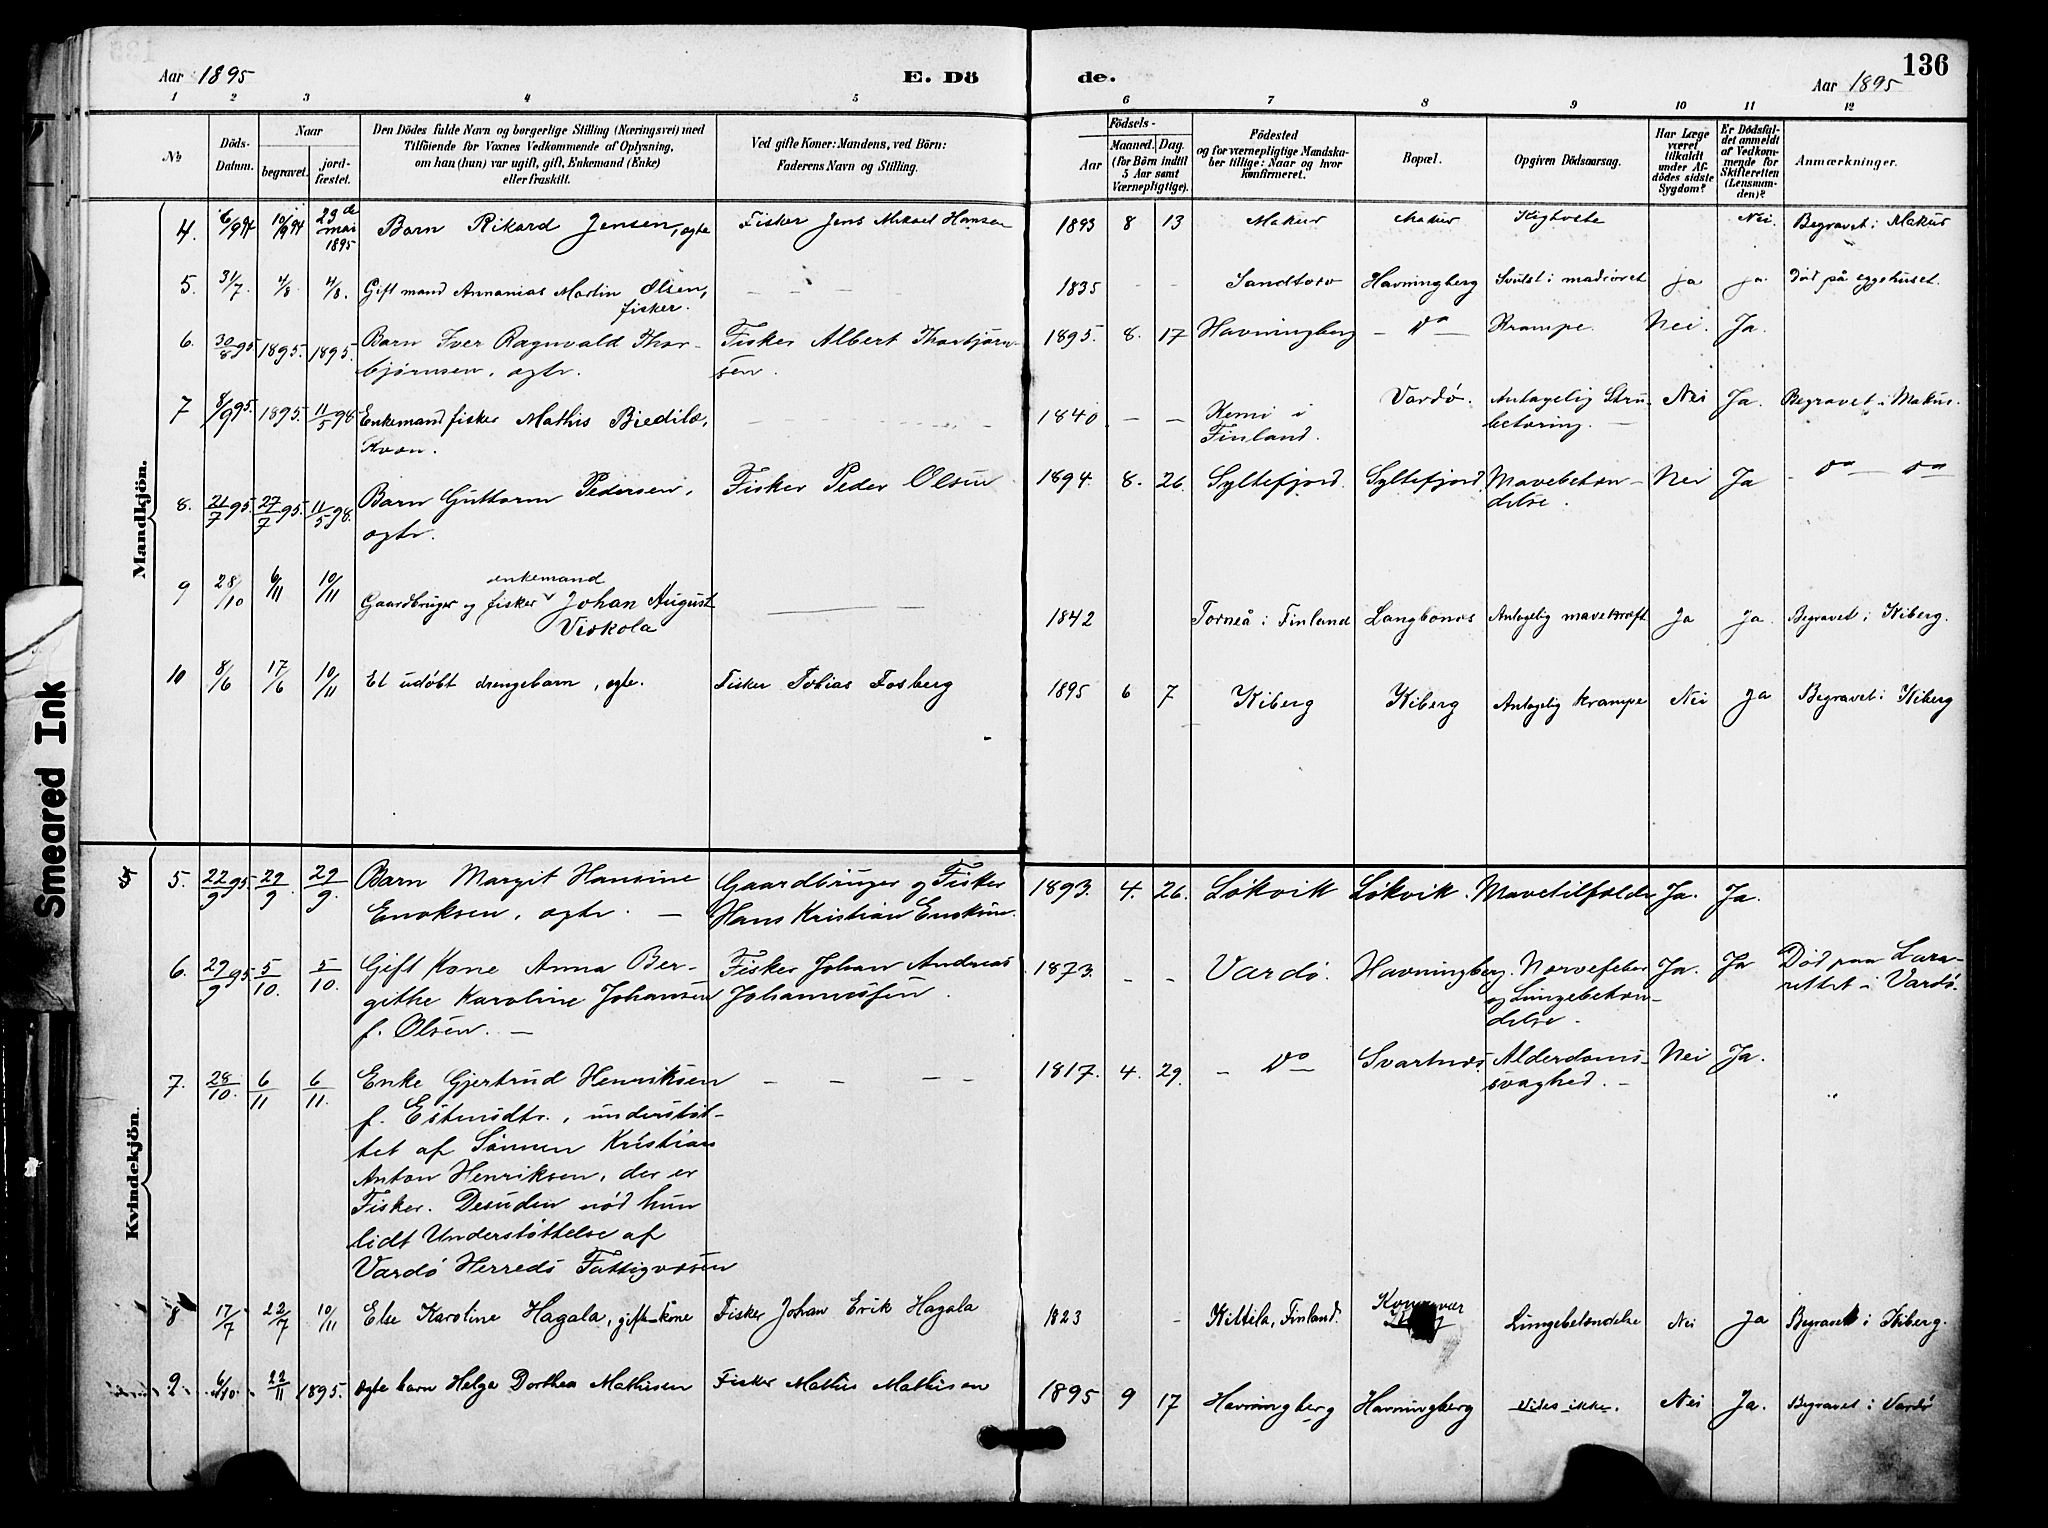 136
Aar 1895
E. Dö
de.
Aar 1895
1 2 3 4 5 6 7 8 9 10 11 12
No
Döds-Datum.
Naar
begravet.
jord-fæstet.
Den Dödes fulde Navn og borgerlige Stilling (Næringsvei) med
Tilföiende for Voxnes Vedkommende af Oplysning,
om han (hun) var ugift, gift, Enkemand (Enke)
eller fraskilt.
Ved gifte Koner: Mandens, ved Börn:
Faderens Navn og Stilling.
Födsels-
Aar
Maaned. Dag.
(for Börn indtil
5 Aar samt
Værnepligtige).
Födested
og for værnepligtige Mandska-
ber tillige: Naar og hvor
konfirmeret.
Bopæl.
Opgiven Dödsaarsag.
Har Læge
været
tilkaldt
under Af-
dödes sidste
Sygdom?
Er Dödsfal-
det anmeldt
af Vedkom-
mende for
Skifteretten
(Lensman-
den)?
Anmærkninger.
Mandkjön.
4. 6/9 94 10/9 94 23de mai 1895 Barn Rikard Jensen, ægte Fisker Jens Mikael Hansen 1893 8 13 Makur Makur Kighoste Nei. Begravet i Makur
5. 31/7 4/8 4/8. Gift mand Annanias Martin Olsen, 1835 - - Sandtorv Havningberg Svulst i madrøret ja ja. Død på sygehuset.
fisker.
6. 30/8 95 1895. 1895. Barn Iver Ragnvald Thor- Fisker Albert Thorbjørn- 1895. 8. 17 Havningberg - Do - Krampe. Nei. Ja.
bjørnsen, ægte. sen.
7 8/9 95. 1895. 11/5 98 Enkemand fisker Mathis Biedilæ, 1840 - - Kemi i Vardø. Antagelig Stru- Nei Ja. Begravet i Makur.
Kvæn. Finland. betæring.
8. 21/7 95. 27/7 95. 11/5 98. Barn Guttorm Pedersen, Fisker Peder Olsen 1894. 8. 26. Syltefjord Syltefjord. Mavebetæn- Nei Ja - Do - Do
ægte. delse.
9 28/10 6/11 10/11 enkemand
Gaardbruger og fisker Johan August 1842 Torneå i Finland Langbunes Antagelig mavekræft Ja Ja. Begravet i Kiberg.
Viskola
10 8/6 17/6 10/11 Et udøbt drengebarn, ægte. Fisker Tobias Fosberg 1895 6 7 Kiberg Kiberg Antagelig krampe Nei Ja Begravet i Kiberg
Kvindekjön.
5. 22/9 95. 29/9. 29/9. Barn Margit Hansine Gaardbruger og Fisker 1893. 4. 26. Løkvik Løkvik. Mavetilfælde Ja. Ja.
Enoksen, ægte. - Hans Kristian Enoksen.
6. 29/9 95. 5/10. 5/10. Gift Kone Anna Ber- Fisker Johan Andreas 1873. - - Vardø. Havningberg. Nervefeber Ja. Ja Død paa Laza-
githe Karoline Johansen Johannessen. og Lungebetæn- rettet i Vardø.
f. Olsen. - delse.
7. 28/10. 6/11 6/11. Enke Gjertrud Henriksen - - - - 1817. 4. 29. - Do - Svartnæs. Alderdoms- Nei Ja.
f. Estensdtr., understøt- svaghed. -
tet af Sønnen Kristian
Anton Henriksen, der er
Fisker. Desuden nød hun
lidt Understøttelse af
Vardø Herreds Fattigvæsen
8 17/7 22/7 10/11 Else Karoline Hagala, gift kone Fisker Johan Erik Hagala 1823 - Kittila, Finland. Lungebetændelse Nei Ja Begravet i Kiberg.
9 6/10. 22/11 1895. Ægte barn Helga Dorthea Mathisen Fisker Mathis Mathisen 1895 9 17 Havningberg Havningberg Vides ikke. Nei Ja. Begravet i Vardø
Smeared Ink